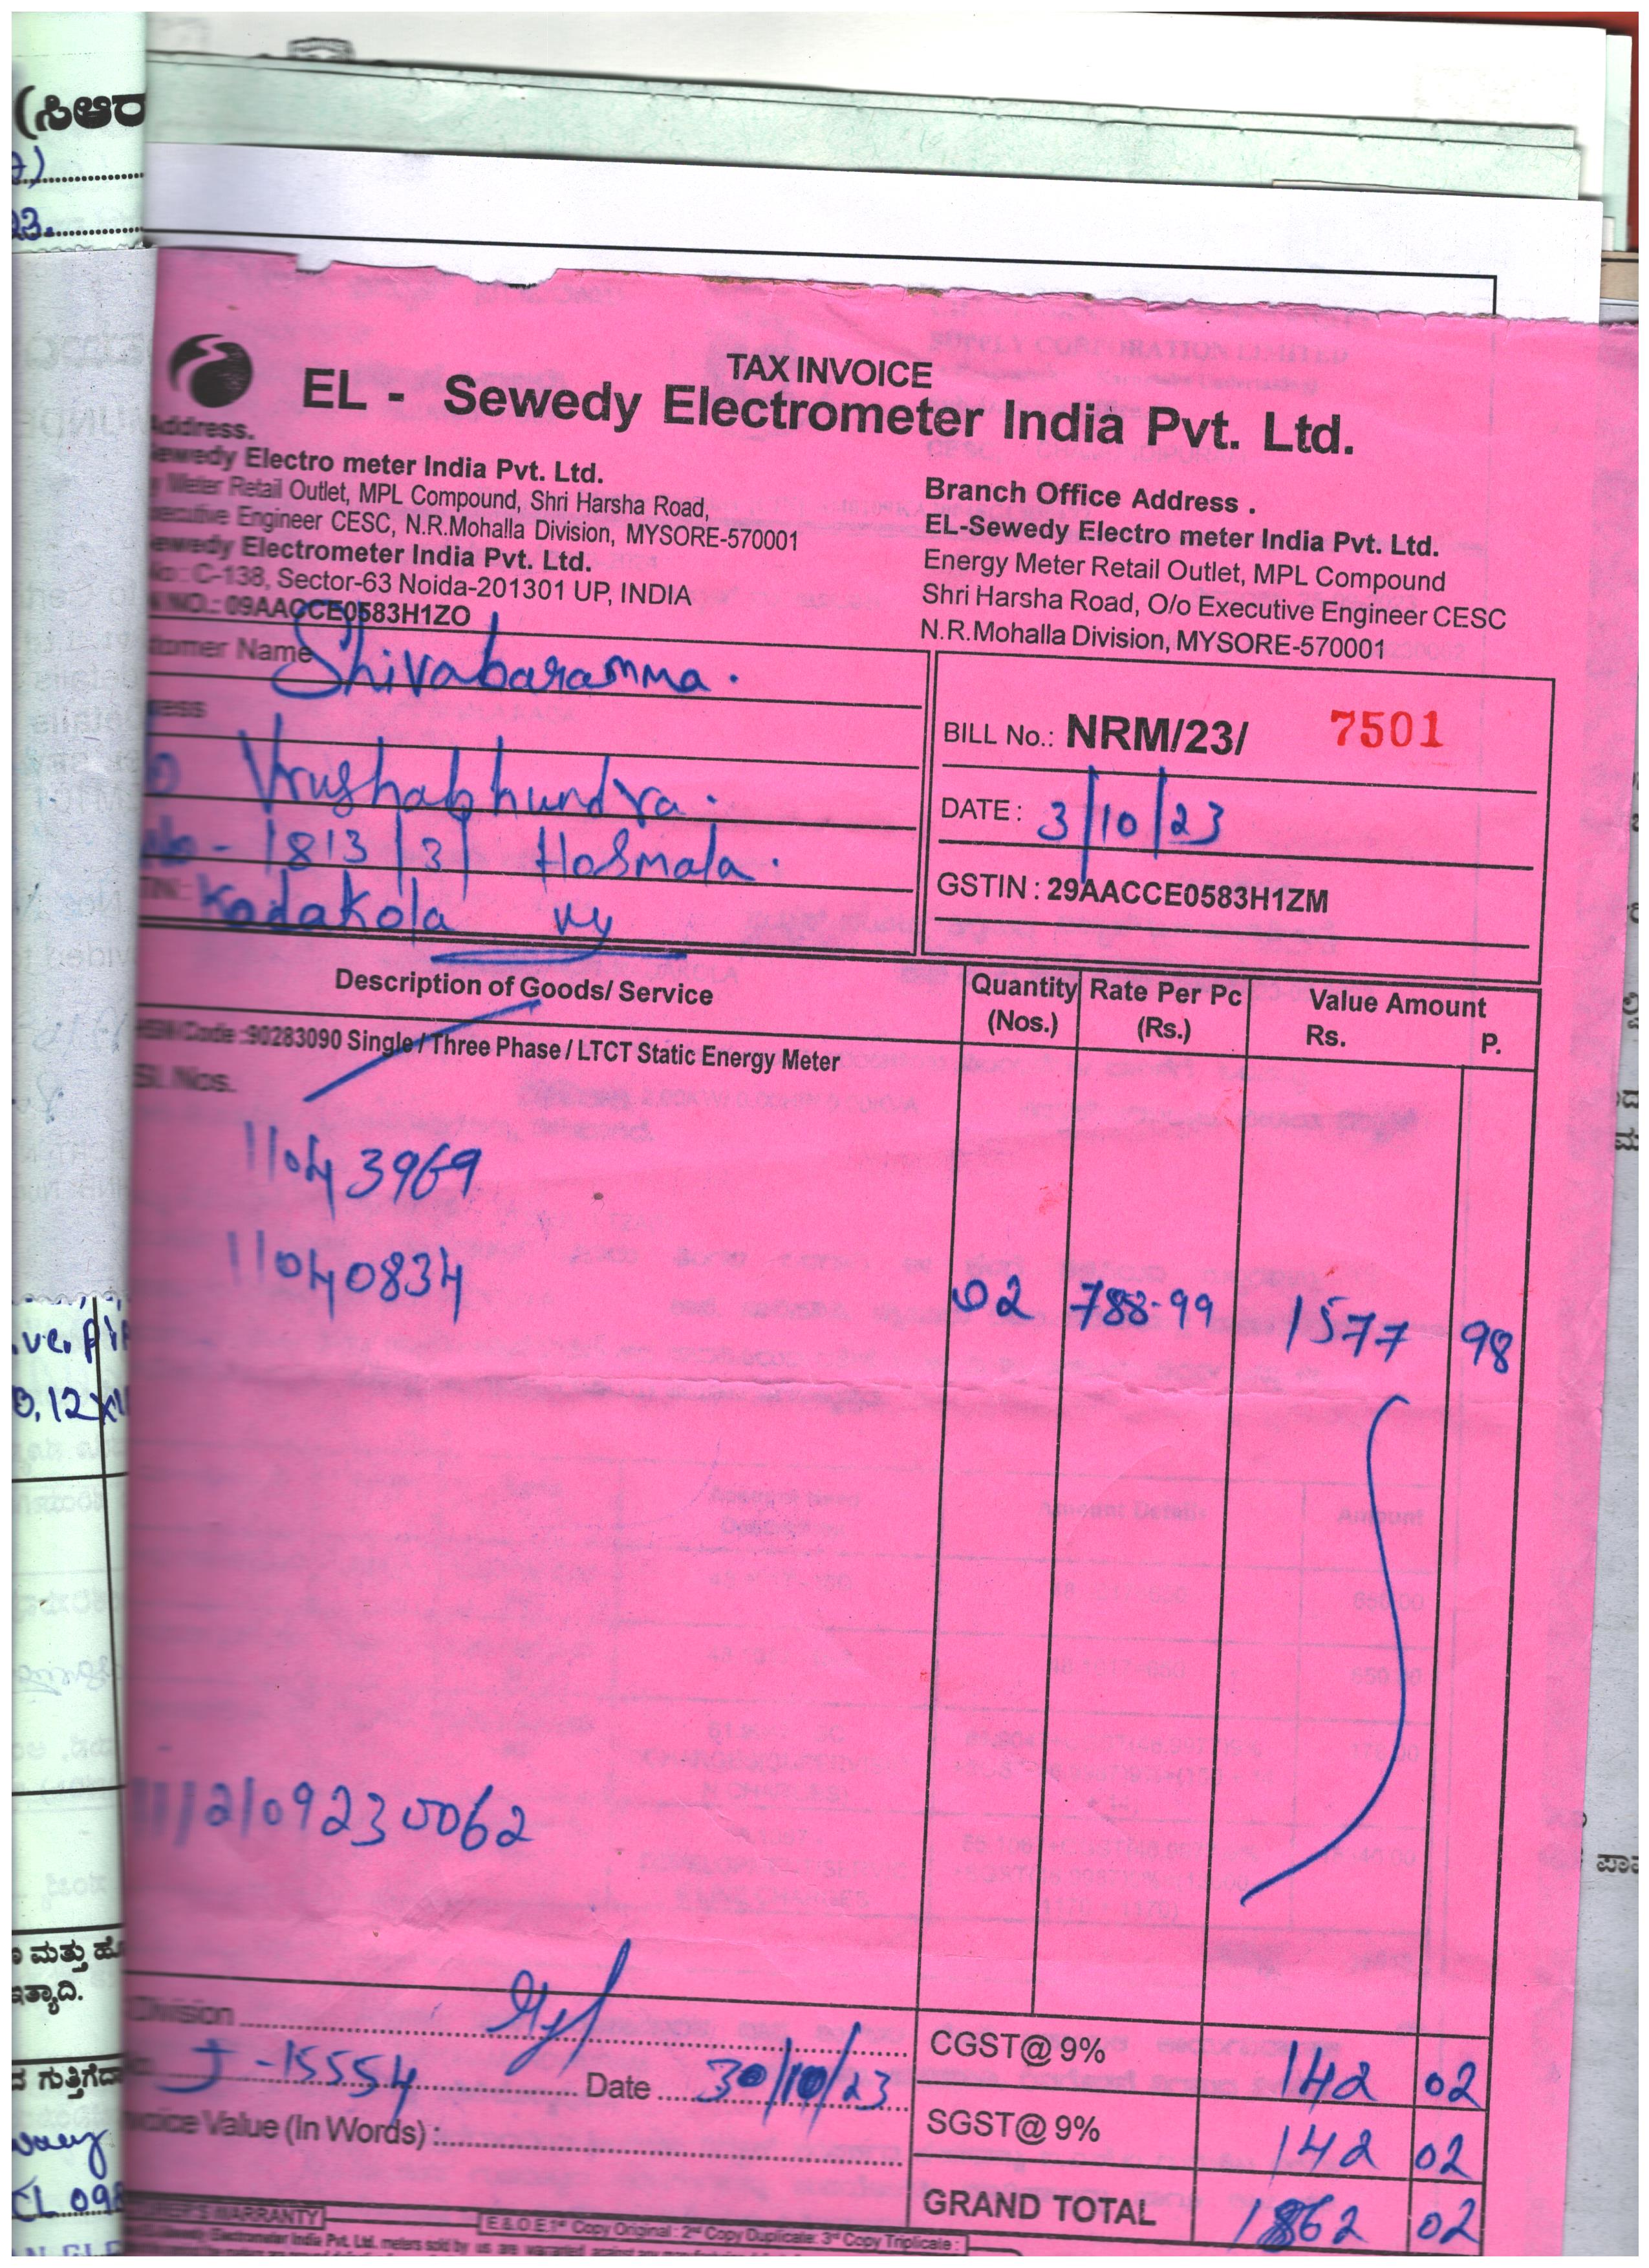 (ಸಿಆರ
23.
TAX INVOICE
EL - Sewedy Electrometer India Pvt. Ltd.
Address.
Sewedy Electro meter India Pvt. Ltd.
y Meter Retail Outlet, MPL Compound, Shri Harsha Road,
Executive Engineer CESC, N.R.Mohalla Division, MYSORE-570001
Sewedy Electrometer India Pvt. Ltd.
No : C-138, Sector-63 Noida-201301 UP, INDIA
NO.: 09AACCE0583H1ZO
Branch Office Address .
EL-Sewedy Electro meter India Pvt. Ltd.
Energy Meter Retail Outlet, MPL Compound
Shri Harsha Road, O/o Executive Engineer CESC
N.R.Mohalla Division, MYSORE-570001
tomer Name Shivabaramma.
ress
Vrushabhundra.
No - 1813/3/ Hosmala.
TIN: Kadakola
BILL No.: NRM/23/ 7501
DATE : 3/10/23
GSTIN : 29AACCE0583H1ZM
Description of Goods/ Service
Quantity (Nos.)
Rate Per Pc (Rs.)
Value Amount
Rs. P.
HSN/Code :90283090 Single / Three Phase / LTCT Static Energy Meter
Sl. Nos.
11043969
11040834 02 788-99 1577 98
11/2/09230062
Division
J-15554 Date 30/10/23
voice Value (In Words) :
CGST@ 9% 142 02
SGST@ 9% 142 02
GRAND TOTAL 1862 02
E.& O.E.1st Copy Original : 2nd Copy Duplicate: 3rd Copy Triplicate :
ER'S WARRANTY
Electrometer India Pvt. Ltd. meters sold by us are warranted against any
ಮತ್ತು ಹೊ
ಇತ್ಯಾದಿ.
ಗುತ್ತಿಗೆದಾ